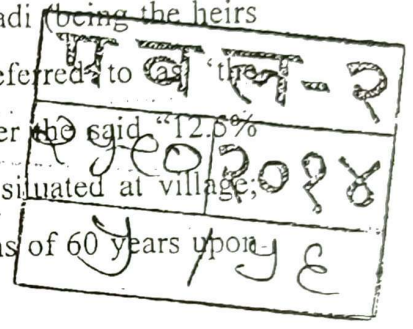 adi (being the heirs
eferred to (as 'the
er the said "12.5%
situated at village,
s of 60 years upon
प व ल - २
२०१४
५ / ५६